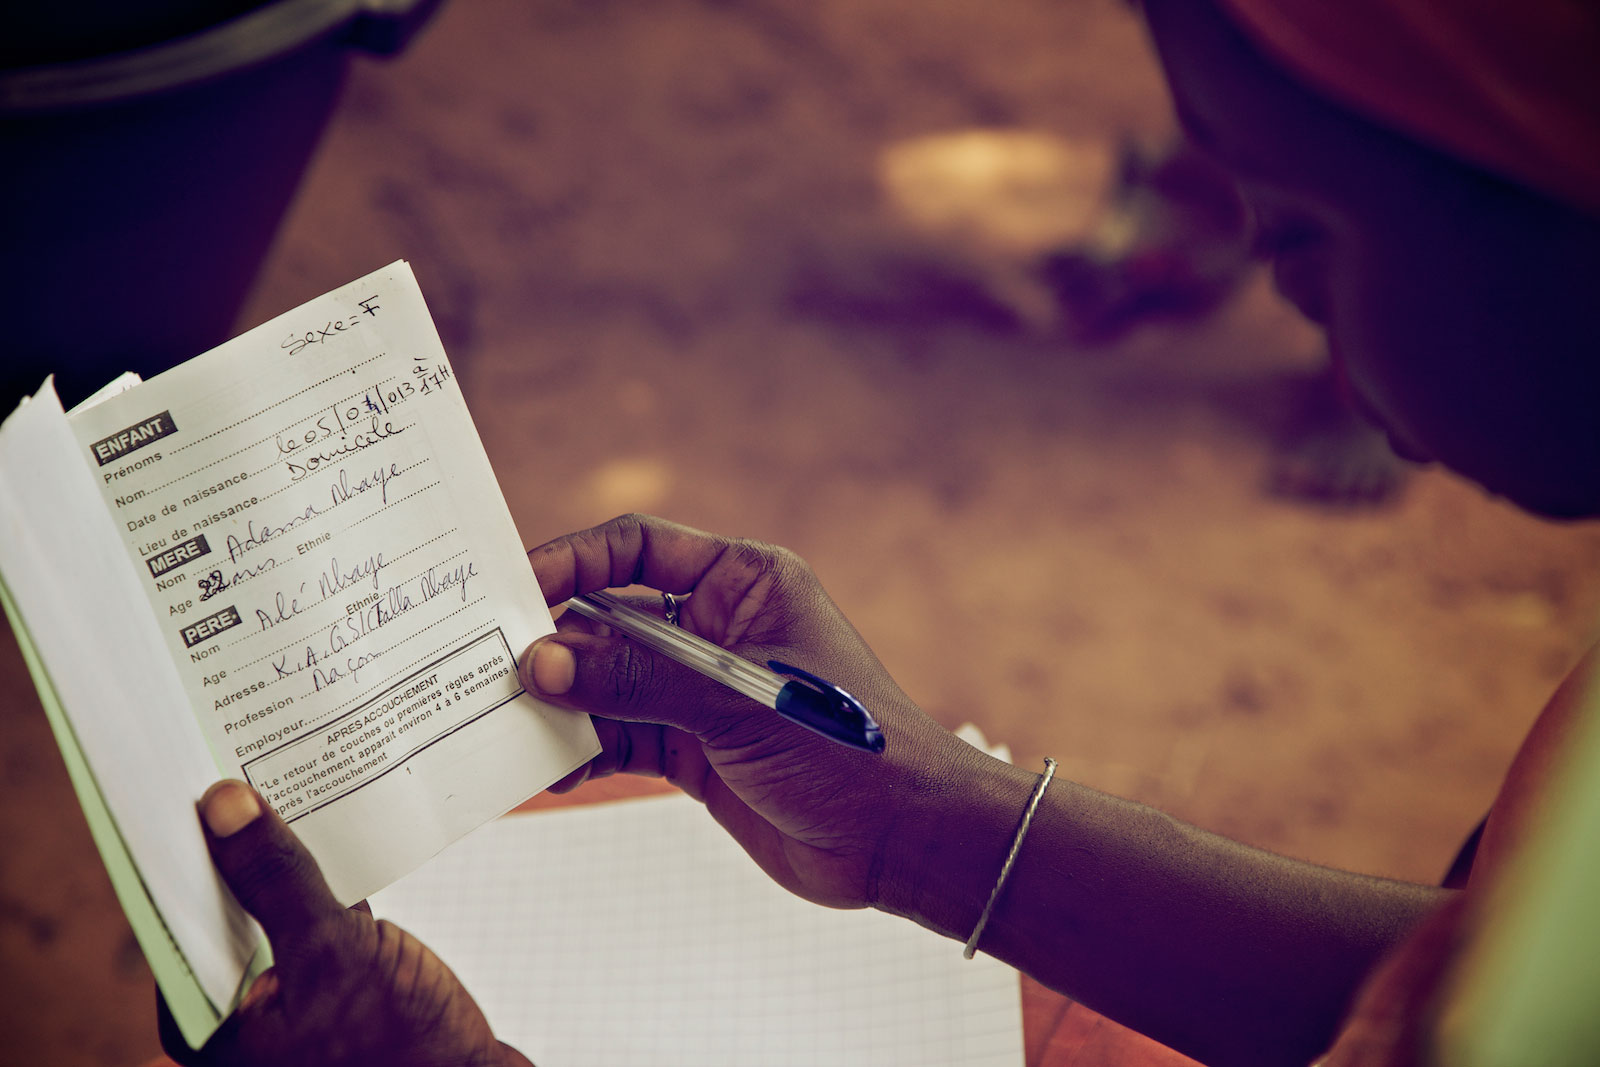 Sexe = F
ENFANT
Prénoms
Nom
Date de naissance le 05/01/013 à 17H
Lieu de naissance Domicile
MERE
Nom Adama Mbaye
Age ans Ethnie
PERE
Nom Alé Mbaye
Age Ethnie
Adresse K.A. Falla Mbaye
Profession Maçon
Employeur
APRES ACCOUCHEMENT
*Le retour de couches ou premières règles après
l'accouchement apparait environ 4 à 6 semaines
après l'accouchement
1